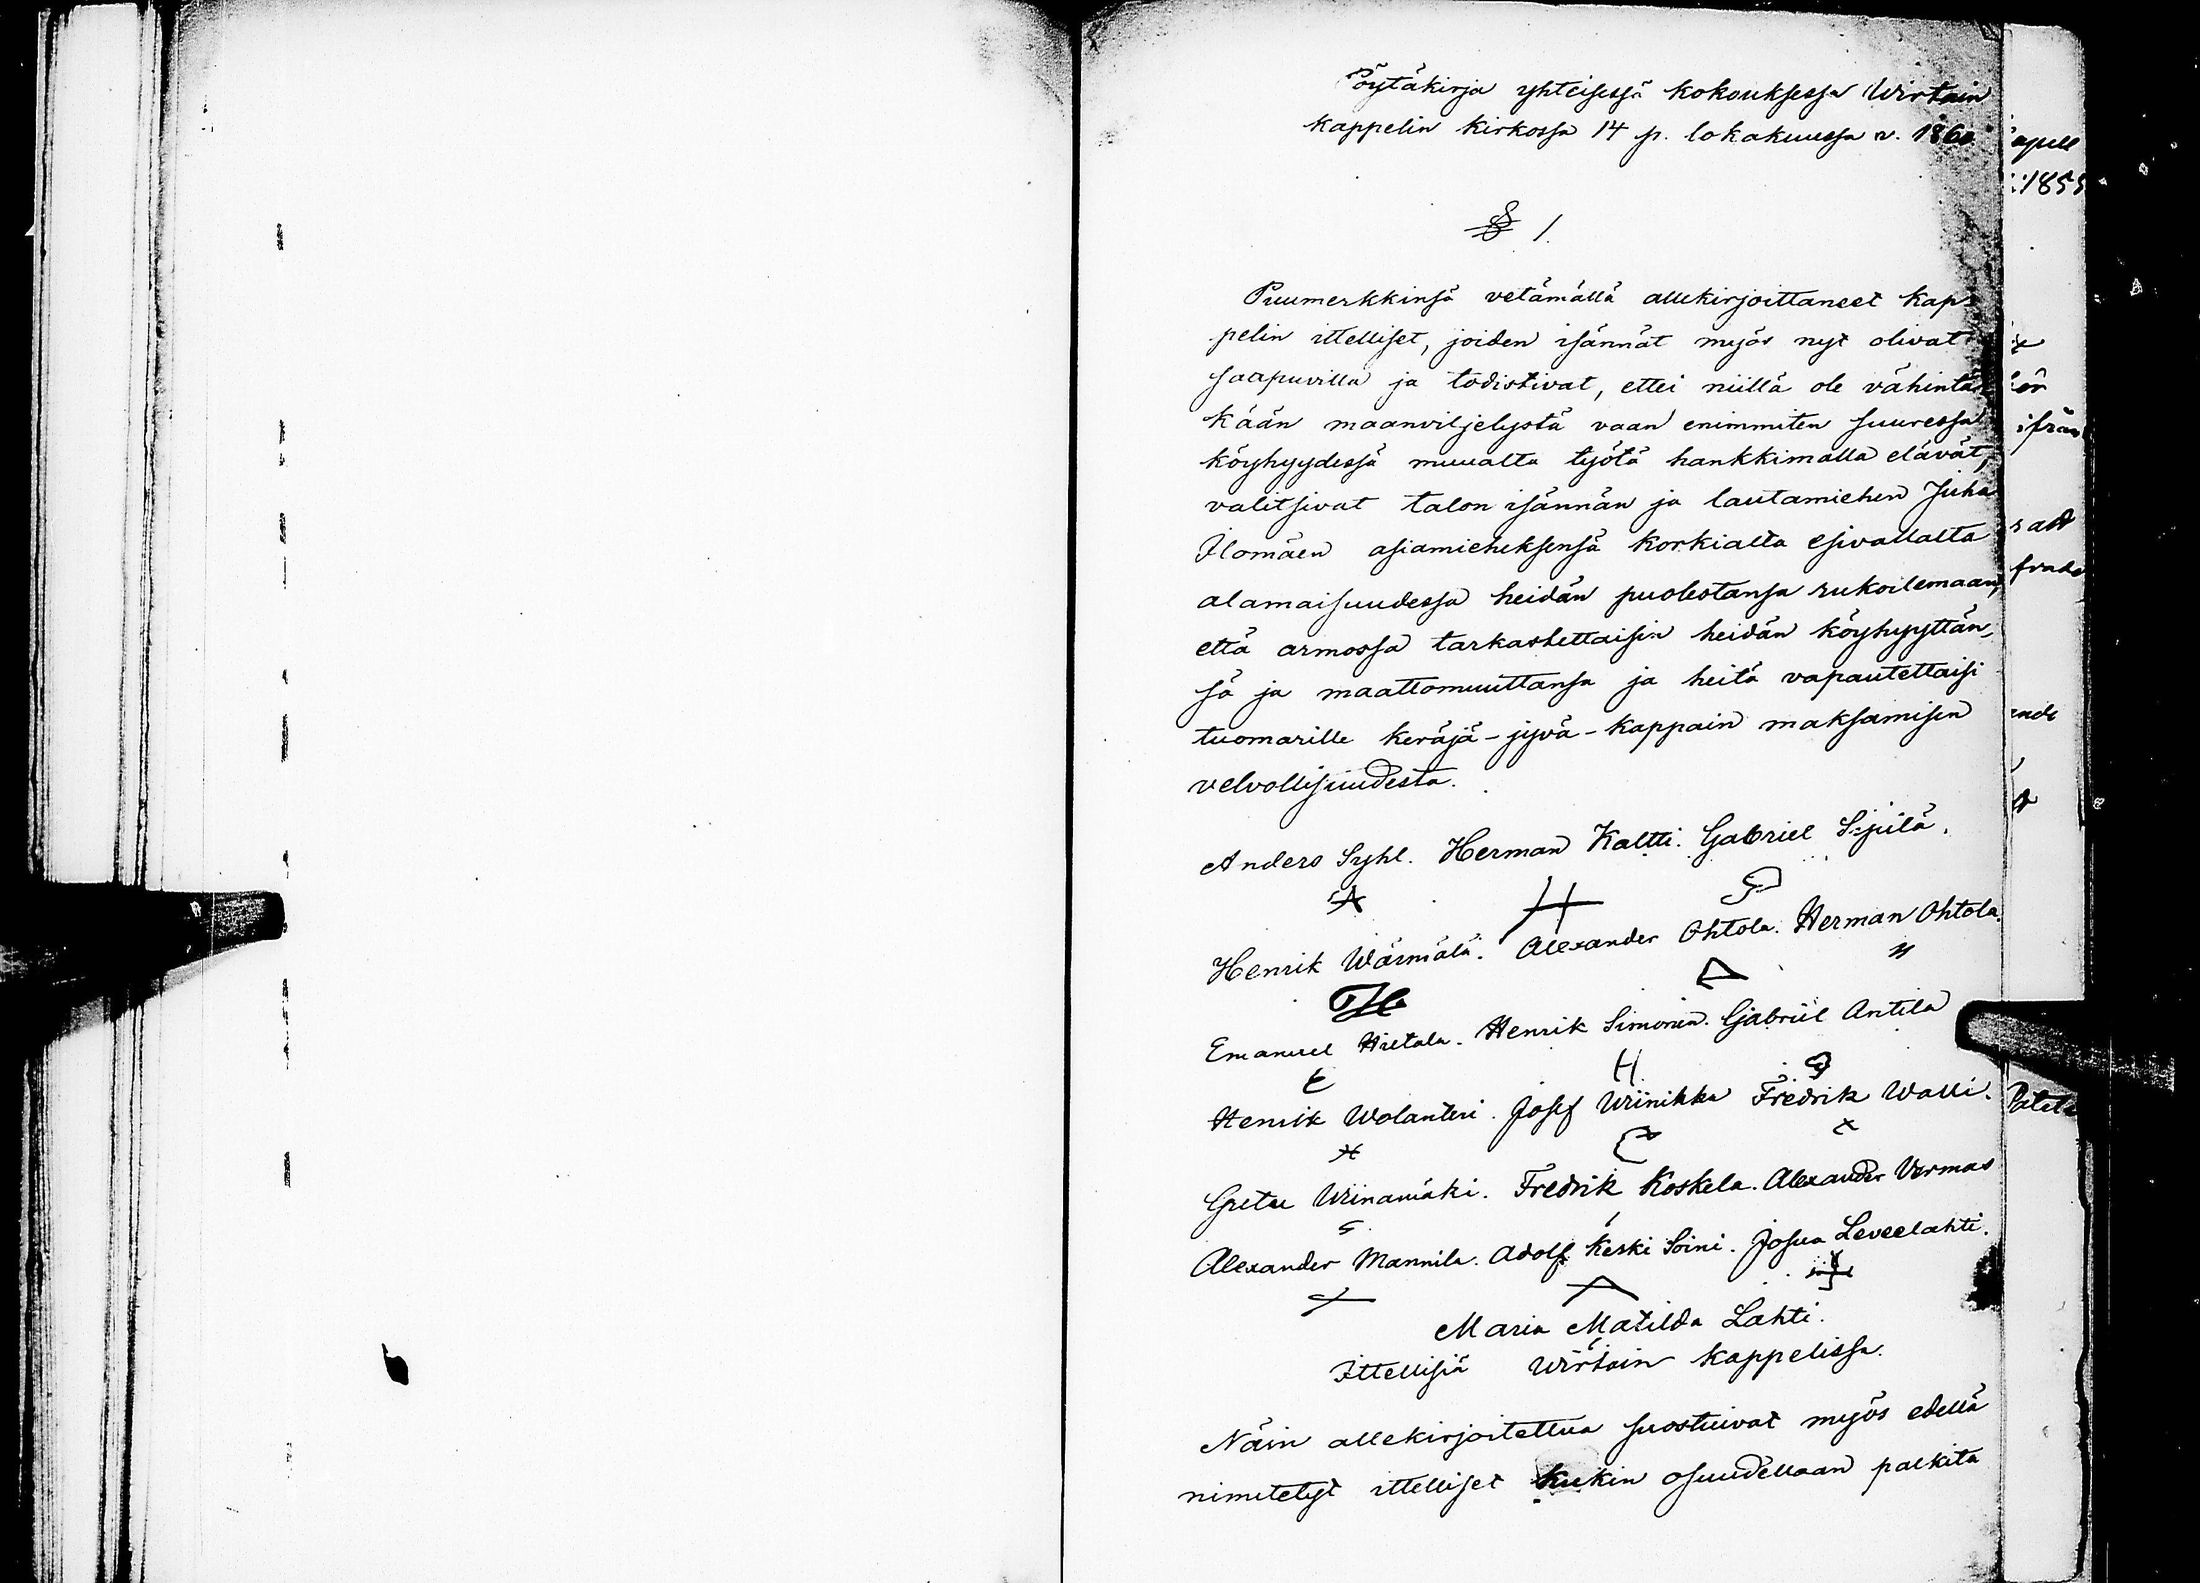 Pöytäkirja yhteisessä kokouksessa Wirtain
kappelin kirkossa 14 p. lokakuussa v. 1860
§ 1.
Puumerkkinsä vetämällä allekirjoittaneet kap-
pelin ittelliset, joiden isännät myös nyt olivat
saapuvilla ja todistivat, ettei niillä ole vähintä-
kään maanviljelystä vaan enimmiten suuressa
köyhyydessä muualta työtä hankkimalla elävät,
valitsivat talon isännän ja lautamiehen Juha
Ilomäen asiamieheksensä korkialta esivallalta
alamaisuudessa heidän puolestansa rukoilemaan,
että armossa tarkastettaisin heidän köyhyyttän-
sä ja maattomuuttansa ja heitä vapautettaisi
tuomarille keräjä-jyvä-kappain maksamisen
velvollisuudesta.
Anders Syhl. Herman Kaltti. Gabriel Sipilä.
Henrik Wärmälä. Alexander Ohtola. Herman Ohtola.
Emanuel Hietala. Henrik Simonen. Gabriel Antila
Henrik Wolanteri. Josef Wiinikka Fredrik Walli.
Greta Wiinamäki. Fredrik Koskela. Alexander Vermas
Alexander Mannila. Adolf Keski Soini. Josua Leveelahti.
Maria Matilda Lahti.
Ittellisiä Wirtain kappelissa.
Näin allekirjoitettua suostuivat myös edellä
nimitetyt ittelliset kukin osuudellaan palkita